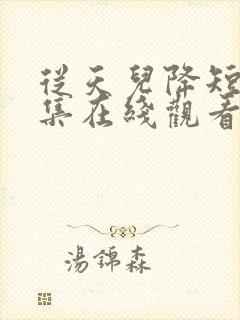 從天兒降短
集在綫觀看
湯錦森